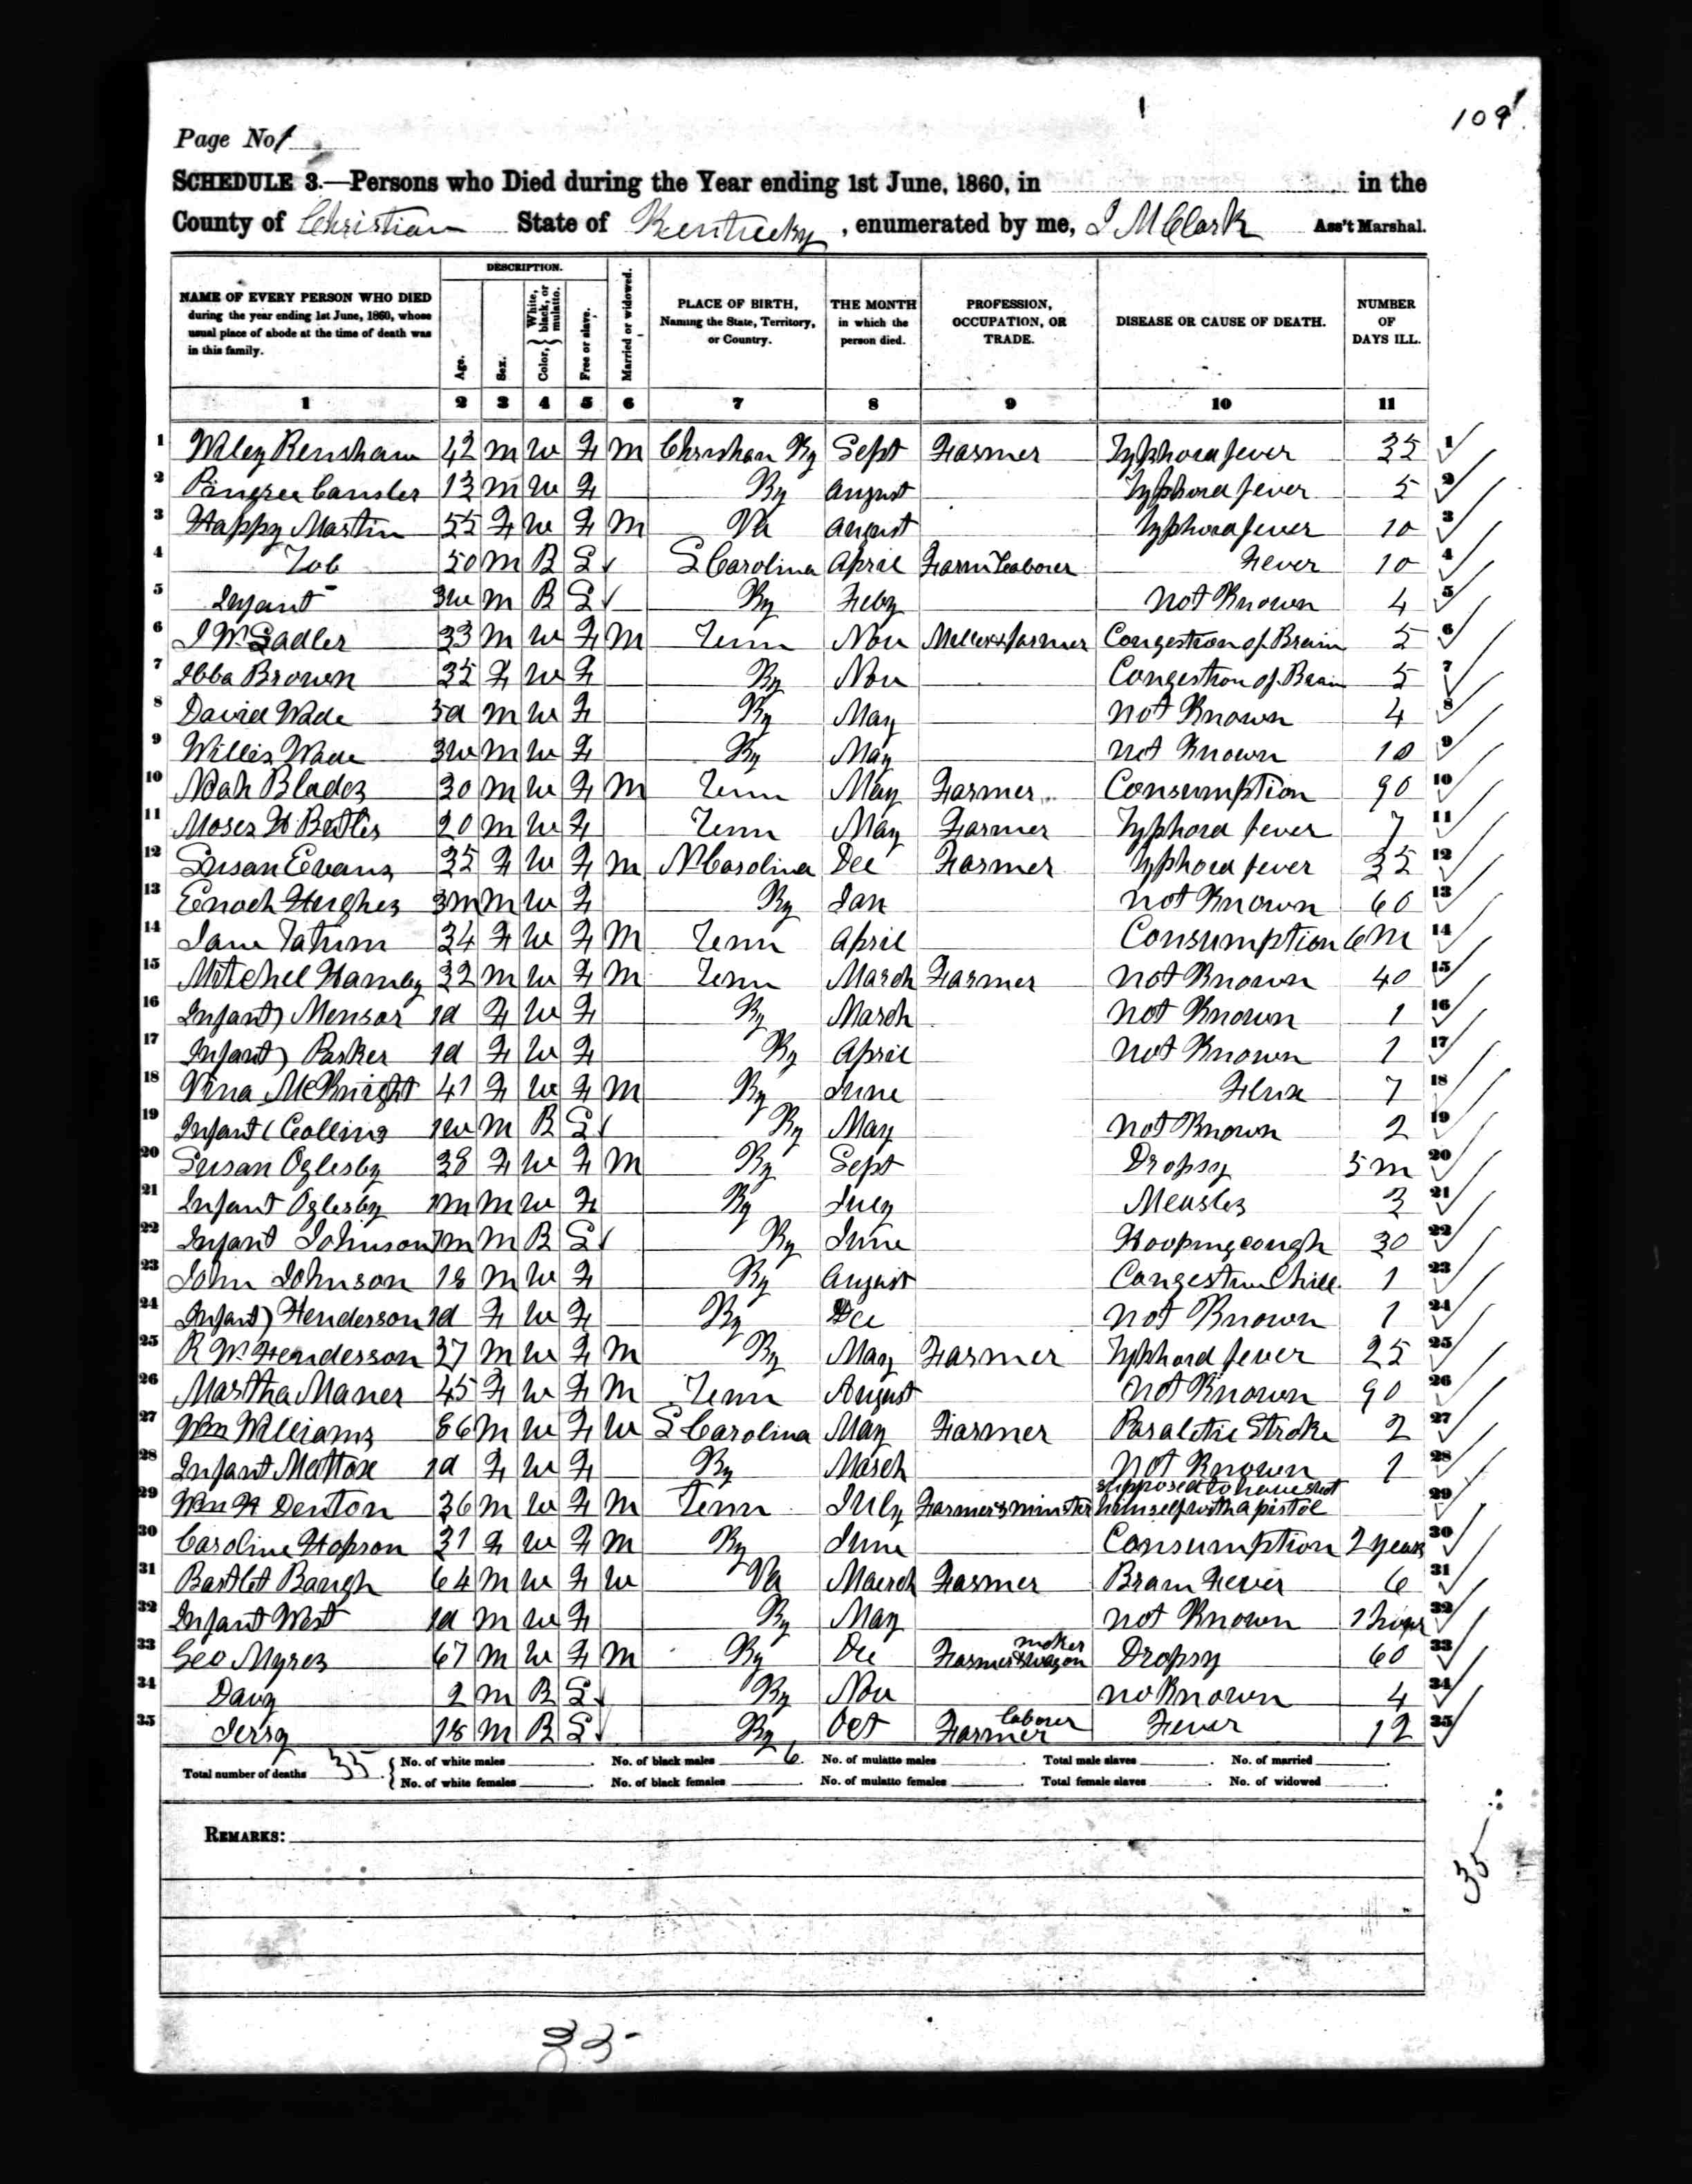 109
Page No 1
SCHEDULE 3.—Persons who Died during the Year ending 1st June, 1860, in in the
County of Christian State of Kentucky, enumerated by me, J M Clark Ass't Marshal.
NAME OF EVERY PERSON WHO DIED during the year ending 1st June, 1860, whose usual place of abode at the time of death was in this family.
DESCRIPTION.
Age. Sex. Color, { White, black, or mulatto. Free or slave. Married or widowed.
PLACE OF BIRTH, Naming the State, Territory, or Country.
THE MONTH in which the person died.
PROFESSION, OCCUPATION, OR TRADE.
DISEASE OR CAUSE OF DEATH.
NUMBER OF DAYS ILL.
1 2 3 4 5 6 7 8 9 10 11
1 Wiley Renshaw 42 m W F M Christian Ky Sept Farmer Typhoid fever 35 1
2 Cansler 13 m W F Ky August Typhoid fever 5 2
3 Happy Martin 55 F W F M Va August Typhoid fever 10 3
4 50 m B S S Carolina April Farm Laborer Fever 10 4
5 Infant 3w m B S Ky Feby not Known 4 5
6 J W Sadler 33 m W F M Tenn Nov Miller & farmer Congestion of Brain 5 6
7 Ibba Brown 35 F W F Ky Nov Congestion of Brain 5 7
8 David Wade 5d m W F Ky May not Known 4 8
9 Willis Wade 3w m W F Ky May not Known 10 9
10 Noah Blades 30 m W F M Tenn May Farmer Consumption 90 10
11 Moses H 20 m W F Tenn May Farmer Typhoid fever 7 11
12 Susan Evans 35 F W F M N Carolina Dec Farmer Typhoid fever 35 12
13 Enoch Hughes 3m m W F Ky Jan not Known 60 13
14 Jane Tatum 34 F W F M Tenn April Consumption 6m 14
15 Mitchel Hamby 32 m W F M Tenn March Farmer not Known 40 15
16 Infant Menser 1d F W F Ky March not Known 1 16
17 Infant Parker 1d F W F Ky April not Known 1 17
18 Vina McKnight 41 F W F M Ky June Flux 7 18
19 Infant Collins 1w m B S Ky May not Known 2 19
20 Susan Oglesby 38 F W F M Ky Sept Dropsy 5m 20
21 Infant Oglesby 1m m W F Ky July Measles 3 21
22 Infant Johnson 7m m B S Ky June Hoopingcough 30 22
23 John Johnson 18 m W F Ky August Congestive Chill 1 23
24 Infant Henderson 1d F W F Ky Dec not Known 1 24
25 R W Henderson 37 m W F M Ky May Farmer Typhoid fever 25 25
26 Martha Maner 45 F W F M Tenn August not Known 90 26
27 Wm Williams 86 m W F W S Carolina May Farmer Paralitic Stroke 2 27
28 Infant Mattox 1d F W F Ky March not Known 1 28
29 Wm H Denton 36 m W F M Tenn July Farmer & minister supposed to have shot himself with a pistol 29
30 Caroline Hopson 31 F W F M Ky June Consumption 2 years 30
31 Bartlet Baugh 64 m W F W Va March Farmer Brain Fever 6 31
32 Infant West 1d m W F Ky May not Known 1 hour 32
33 Geo Myres 67 m W F M Ky Dec Farmer & wagon maker Dropsy 60 33
34 Davy 2 m B S Ky Nov no Known 4 34
35 Jersy 18 m B S Ky Oct Farmer laborer Fever 12 35
Total number of deaths 35 { No. of white males . No. of black males 6. No. of mulatto males . Total male slaves . No. of married .
No. of white females . No. of black females . No. of mulatto females . Total female slaves . No. of widowed .
REMARKS:
35